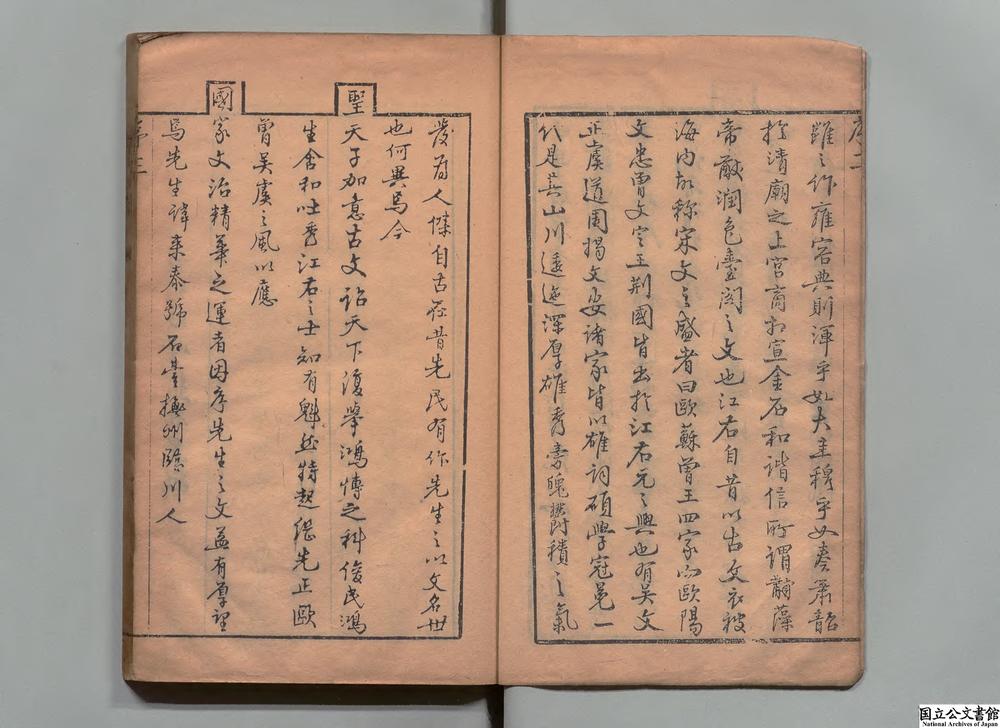 序二
雖之作雍容典則渾乎如大圭穆乎如奏蕭韶
於清廟之上宮商相宣金石和諧信所謂黼藻
帝猷潤色臺閣之文也江右自昔以古文衣被
海内故称宋文之盛者曰歐蘇曾王四家而歐陽
文忠曾文定王荆國皆出於江右元之興也有吴文
正虞道園揭文安諸家皆以雄詞碩學冠冕一
代是其山川逶迤深厚雄秀旁魄欝積之氣
發為人傑自古於昔先民有作先生之以文名世
也何異焉今
聖天子加意古文詔天下復舉鴻博之科俊民鴻
生含和吐秀江右之士知有魁然特起繼先正歐
曾吴虞之風以應
國家文治精華之運者因序先生之文益有厚望
焉先生諱来泰號石臺撫州臨川人
序三
国立公文書館
National Archives of Japan